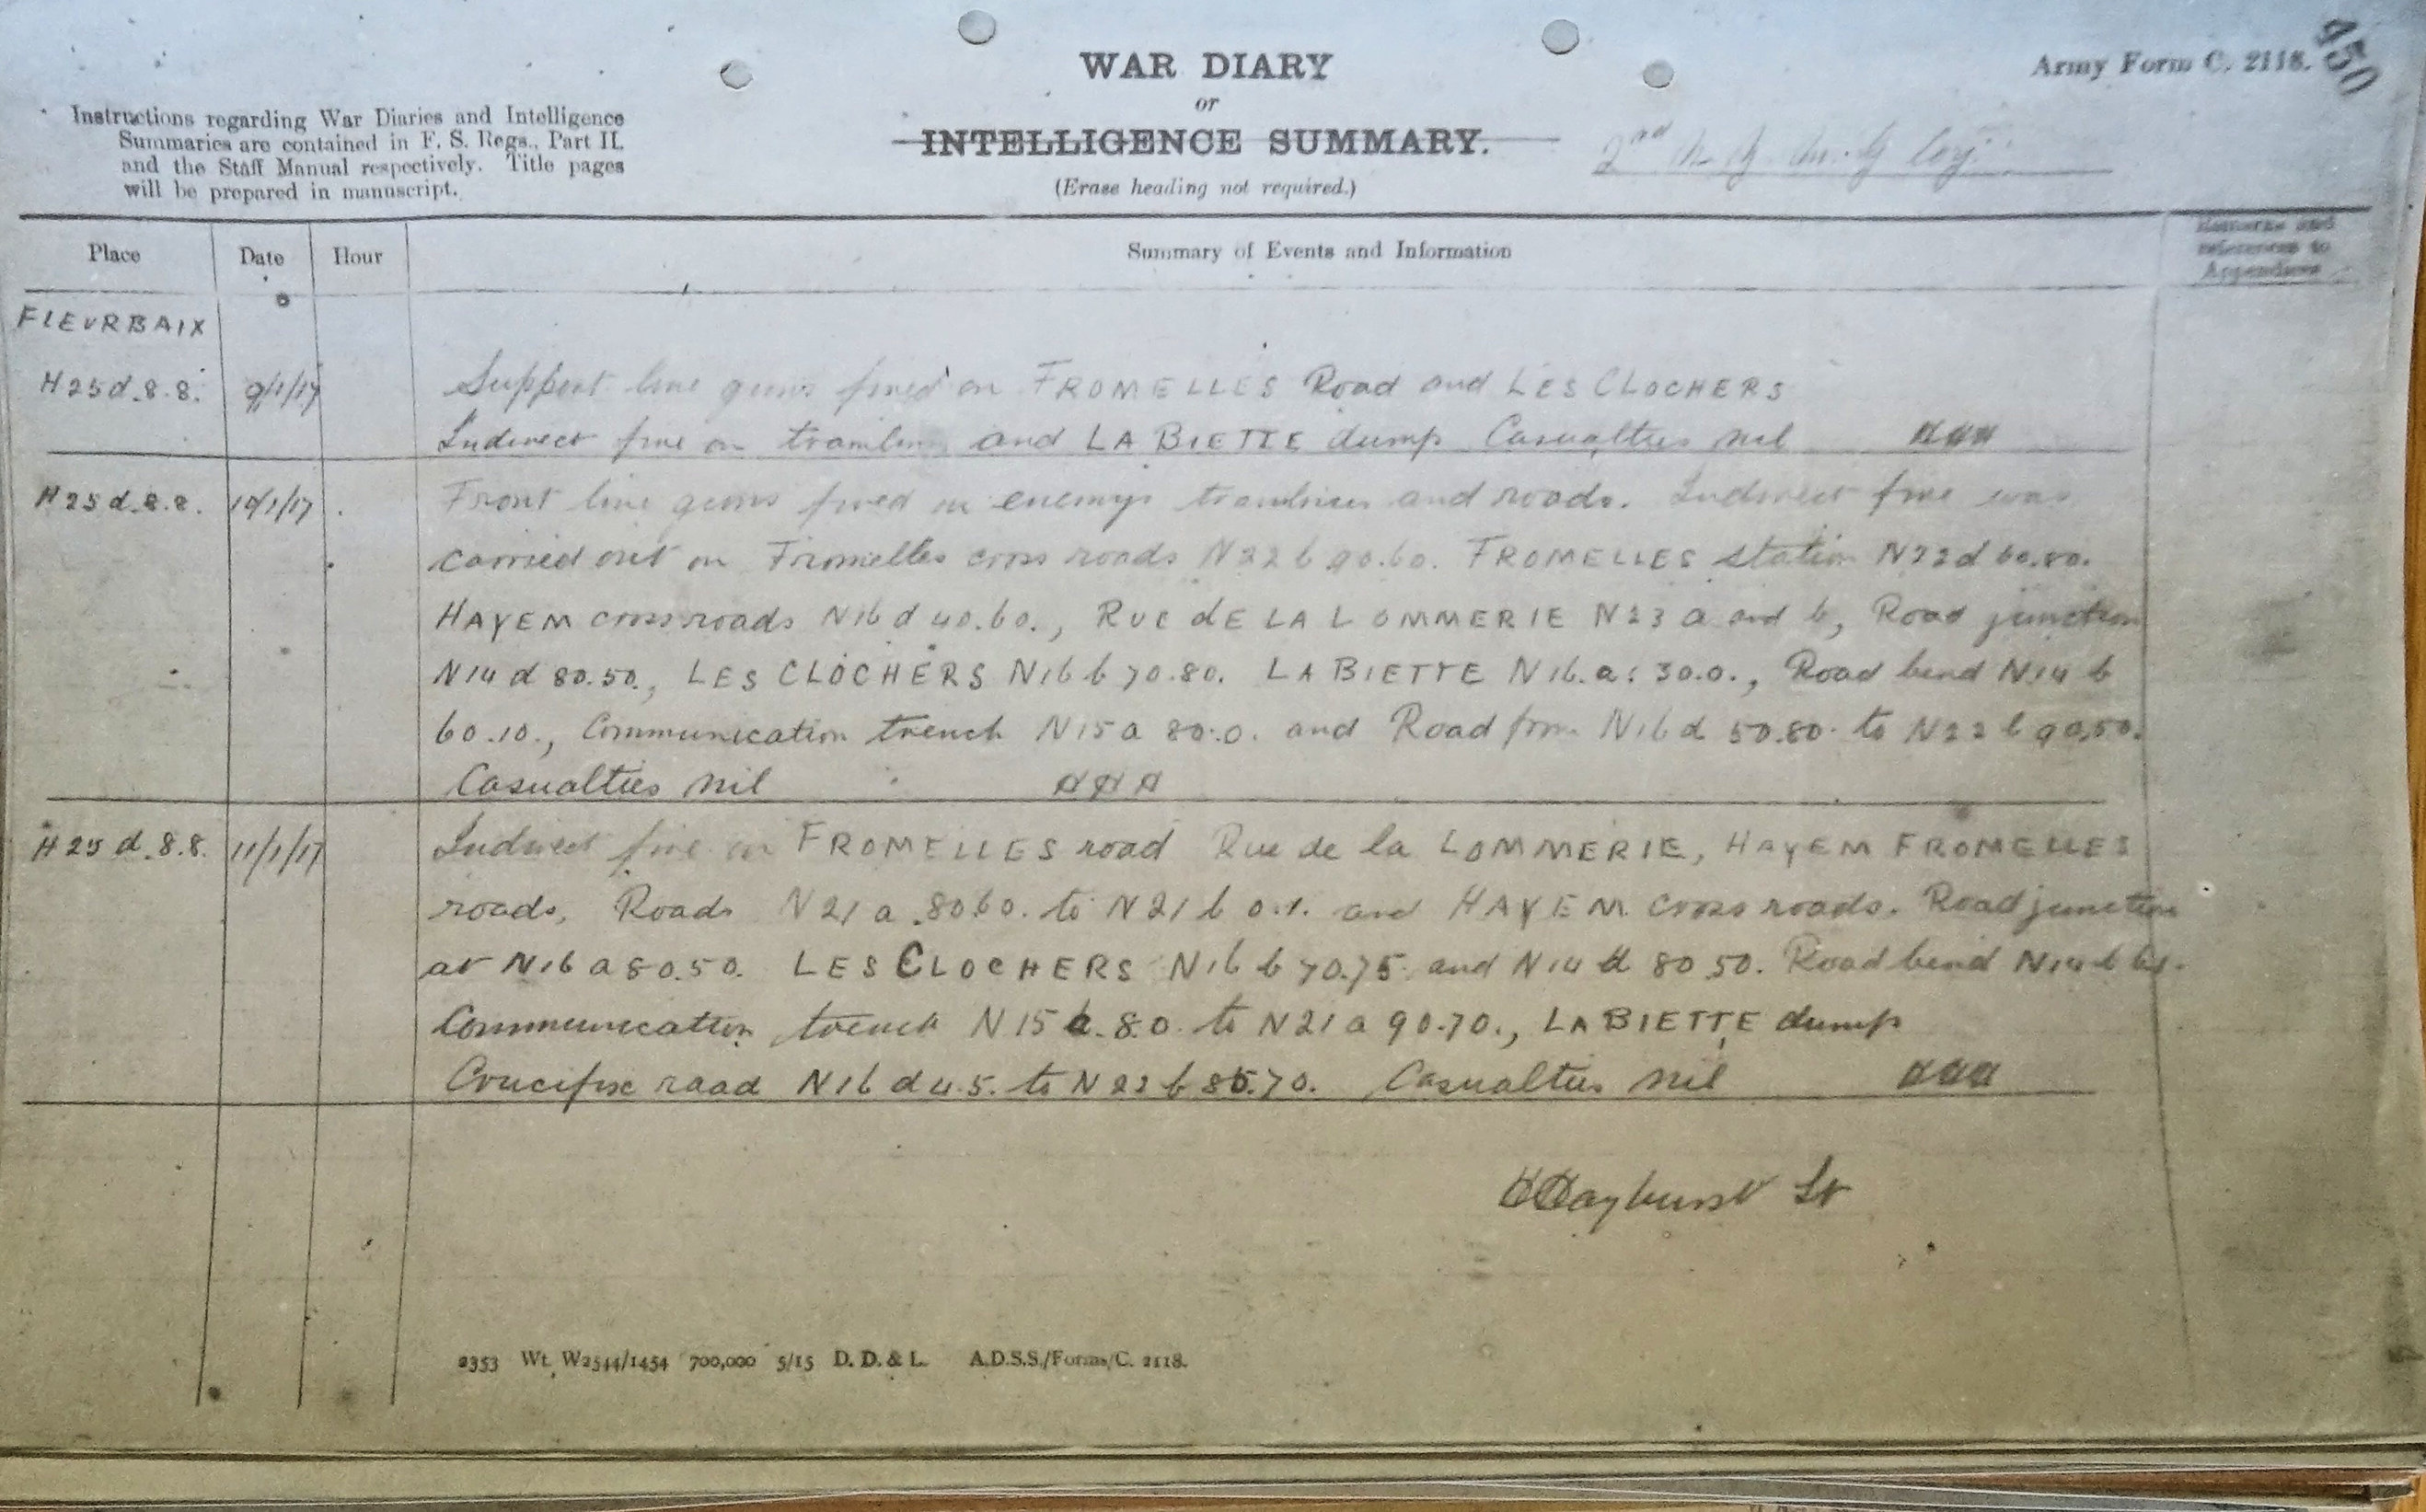 450
Army Form C. 2118.
WAR DIARY
or
INTELLIGENCE SUMMARY.
(Erase heading not required.)
Instructions regarding War Diaries and Intelligence
Summaries are contained in F. S. Regs., Part II.
and the Staff Manual respectively. Title pages
will be prepared in manuscript.
2nd N. Z. M. G Coy.
Place Date Hour Summary of Events and Information Remarks and
references to
Appendices
FLEURBAIX
H 25 d. 8. 8. 9/1/17 Support line guns fired on FROMELLES Road and LES CLOCHERS
Indirect fire on tramline and LA BIETTE dump Casualties nil
H 25 d. 8. 8. 10/1/17 Front line guns fired on enemys tramlines and roads. Indirect fire was
carried out on Fromelles cross roads N22 b 90.60. FROMELLES station N22d 60.80.
HAYEM cross roads N16 d 40.60., RUE dE LA LOMMERIE N23 a and b, Road junction
N14 d 80.50., LES CLOCHERS N16 b 70.80. LA BIETTE N16. a. 30.0., Road bend N14 b
60.10., Communication trench N15 a 80.0. and Road from N16 d 50.80. to N22 b 90.50.
Casualties nil
H 25 d. 8.8. 11/1/17 Indirect fire on FROMELLES road Rue de la LOMMERIE, HAYEM FROMELLES
roads, Roads N21 a .80 60. to N21 b 0.1. and HAYEM cross roads. Road junction
at N16 a 80.50. LES CLOCHERS N16 b 70.75. and N14 d 80 50. Road bend N14 b
Communication trench N15 a. 8.0. to N21 a 90.70., LA BIETTE dump
Crucifix road N16 d 4.5. to N22 b 85.70. Casualties nil
Hayhurst Lt
2353 Wt. W2544/1454 700,000 5/15 D. D. & L. A.D.S.S./Forms/C. 2118.